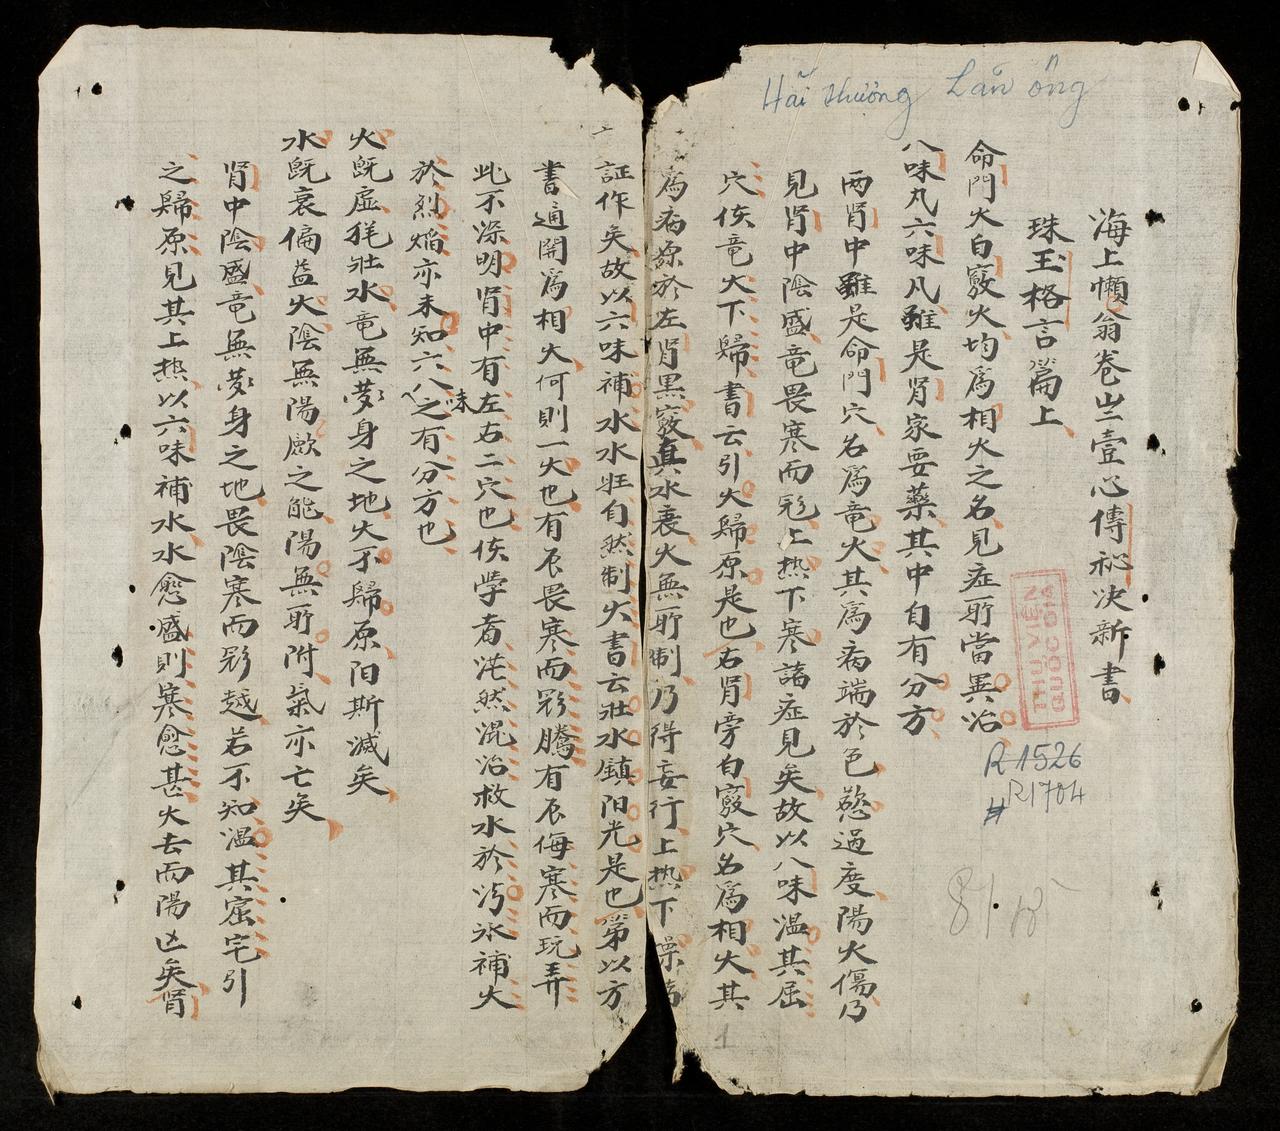 Hải thượng Lãn ông
海上懶翁卷山壹心傳祕决新書
珠玉格言篇上
命門火白竅火均爲相火之名見症所當異治
八味丸六味凡雖是肾家要藥其中自有分方
两肾中雖是命門穴名爲竜火其爲病端於色慾過度陽火傷乃
見肾中陰盛竜畏寒而彩上热下寒諸症見矣故以八味温其屈
穴俟竜火下歸書云引火歸原是也右肾旁白竅穴名爲相火其
爲病源於左肾黑竅真水衰火無所制乃得妄行上热下燥
証作矣故以六味補水水壯自然制火書云壯水鎮阳光是也第以方
書通開爲相火何則一火也有辰畏寒而彩騰有辰侮寒而玩弄
此不深明肾中有左右二穴也俟學者茫然混治救水於冰補火
於烈焰亦未知六八味之有分方也
火旣虚徒壯水竜無夢身之地火不歸原阳斯滅矣
水旣衰偏益火陰無陽厥之能陽無所附氣亦亡矣
肾中陰盛竜無夢身之地畏陰寒而彩越若不知温其窟宅引
之歸原見其上热以六味補水水愈盛則寒愈甚火去而陽亡矣肾
THƯ VIỆN
QUỐC GIA
R1526
R1704
1